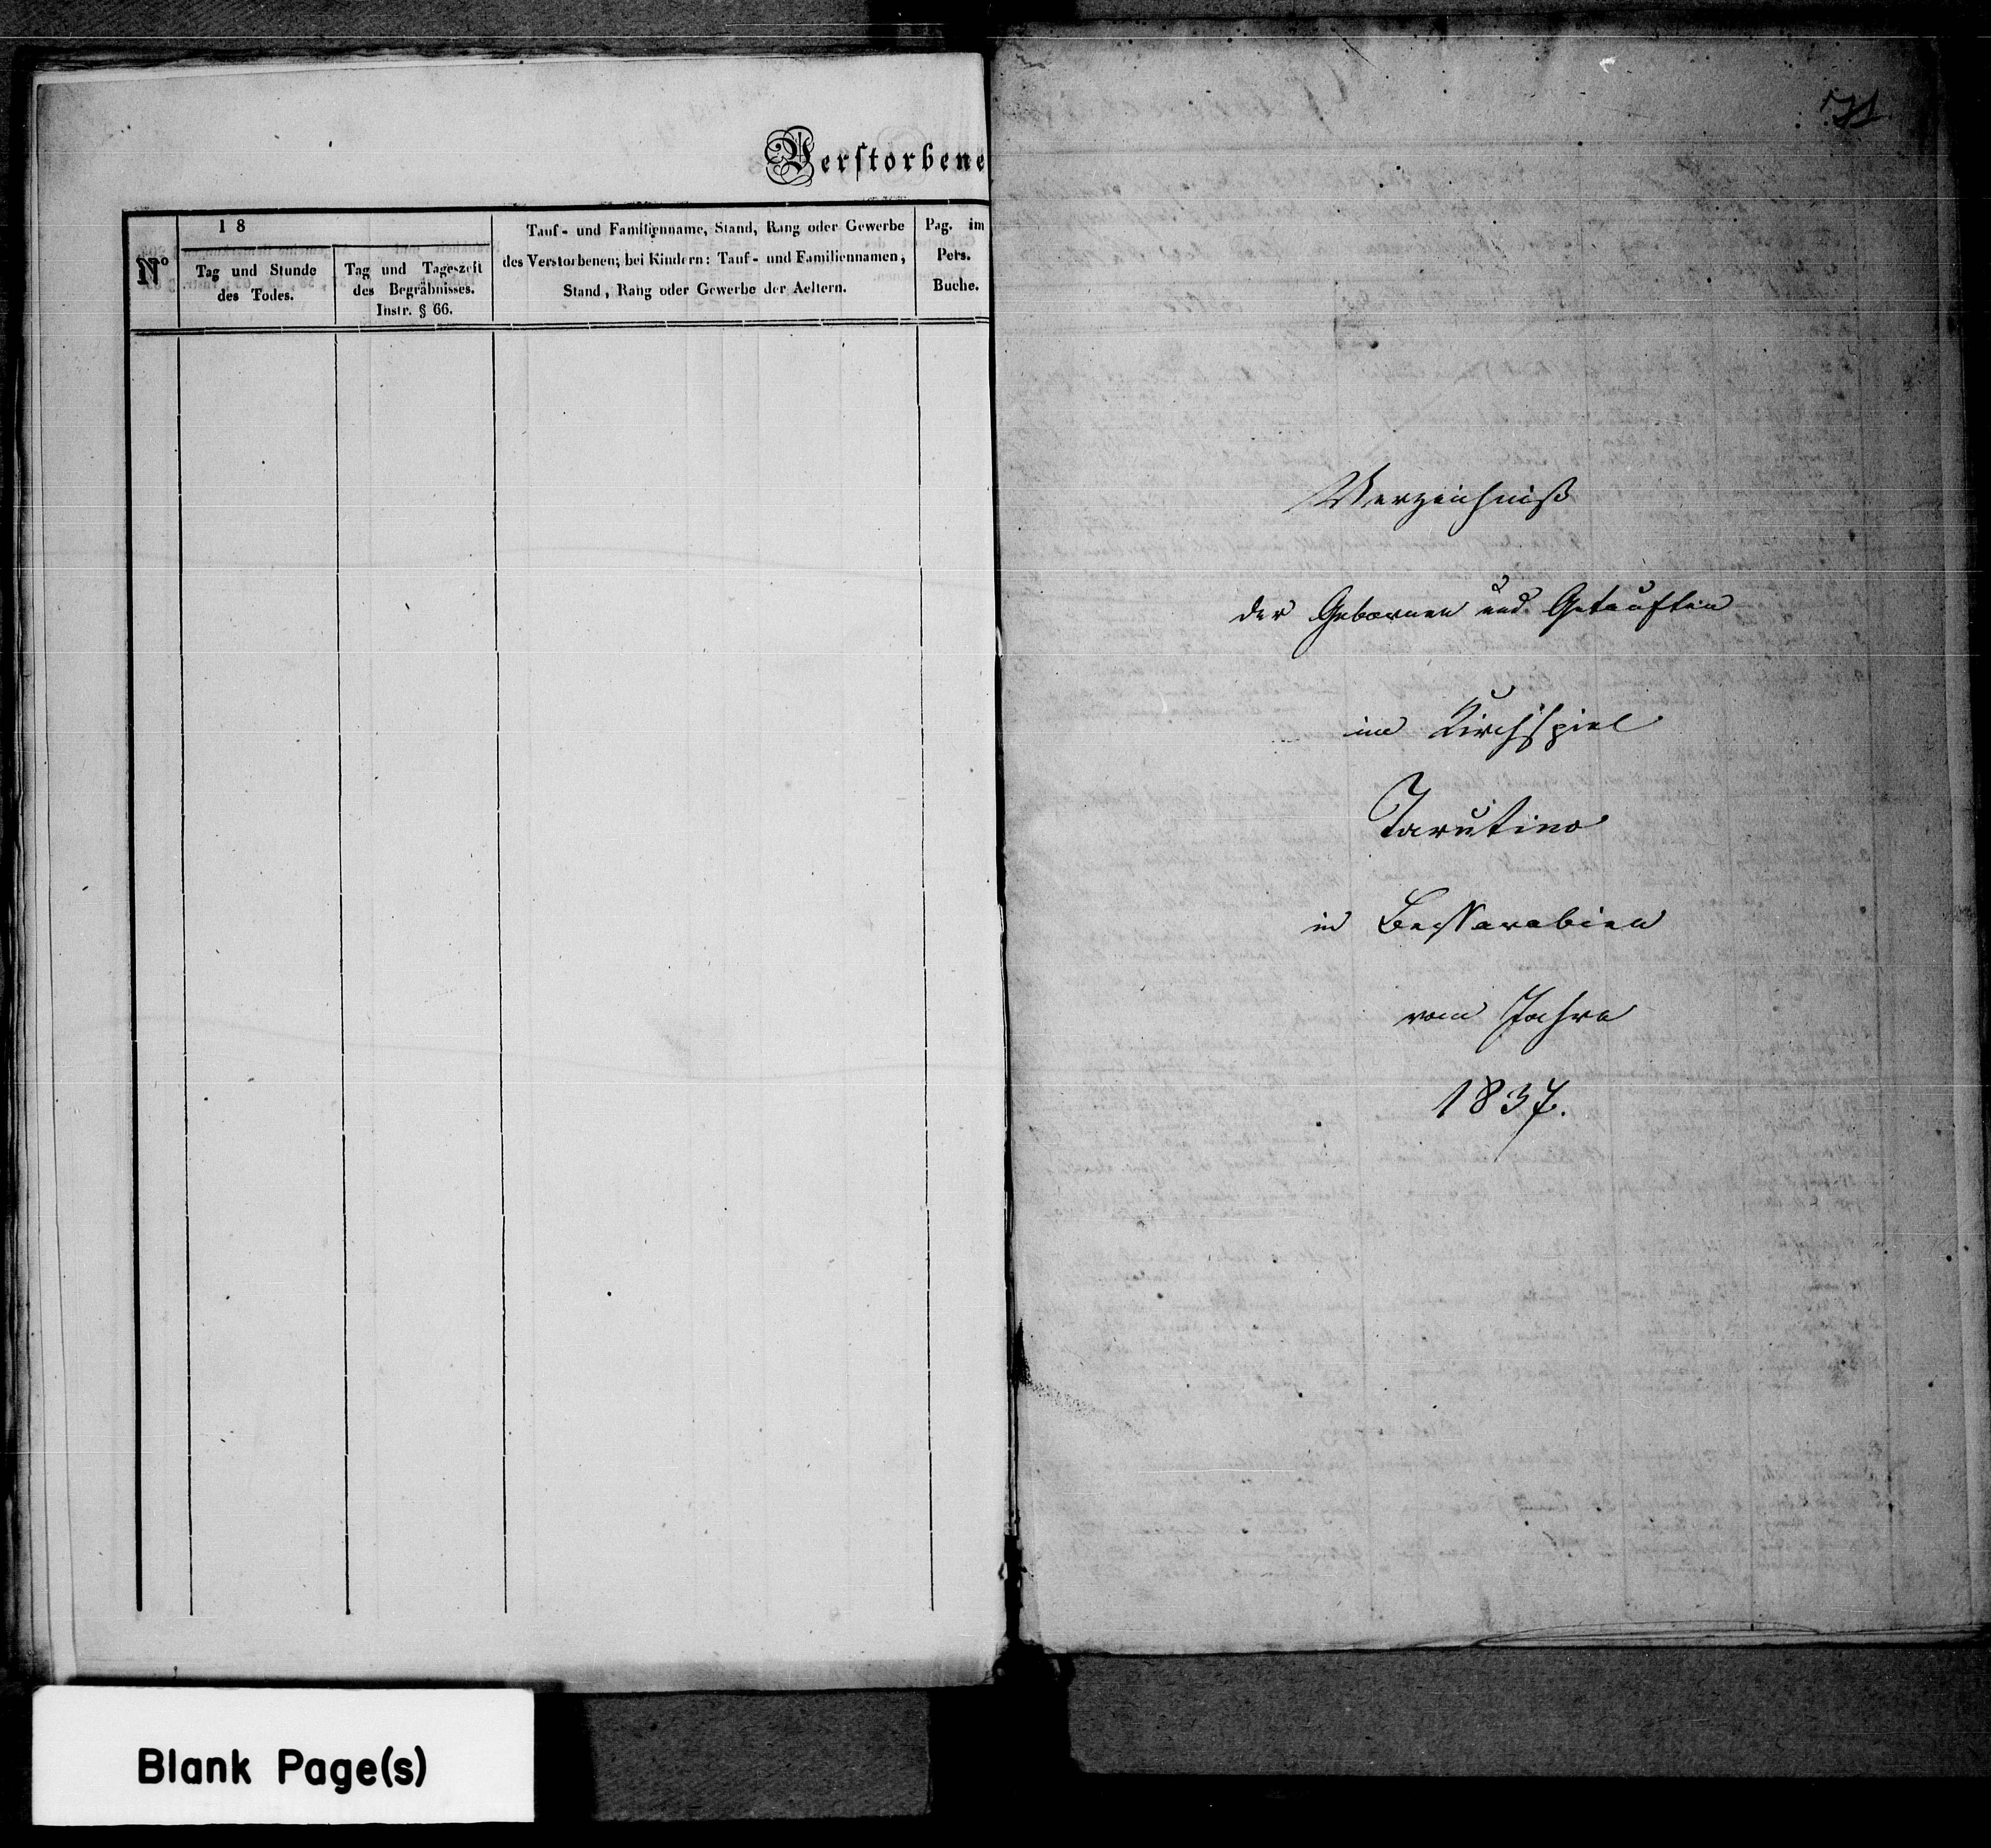 Verstorbene
N°
18
Tag und Stunde
des Todes.
Tag und Tageszeit
des Begräbnisses.
Instr. § 66.
Tauf- und Familienname, Stand, Rang oder Gewerbe
des Verstorbenen; bei Kindern: Tauf- und Familiennamen,
Stand, Rang oder Gewerbe der Aeltern.
Pag. im
Pers.
Buche.
Verzeichniß
der Gebornen und Getauften
im Kirchspiel
Tarutino
in Bessarabien
vom Jahre
1837.
Blank Page(s)